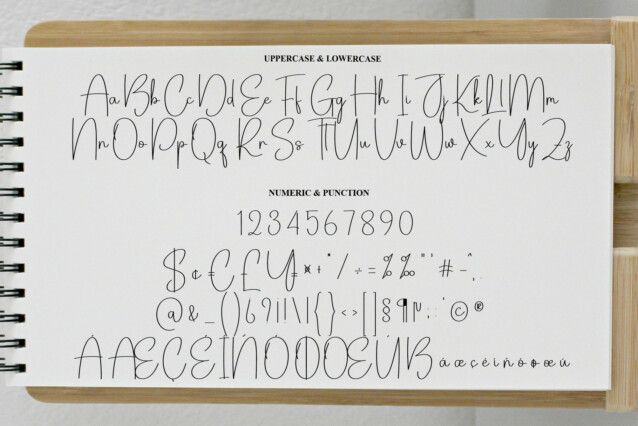 UPPERCASE & LOWERCASE
Aa Bb Cc Dd Ee Ff Gg Hh Ii Jj Kk Ll Mm
Nn Oo Pp Qq Rr Ss Tt Uu Vv Ww Xx Yy Zz
NUMERIC & PUNCTION
1234567890
$ ¢ € £ ¥ ¤ + * / ÷ = % ‰ " ' # - ^ , .
@ & _ ( ) 6 9 ! | \ | { } < > [ ] § ¶ µ . : ' © ®
À Æ Ç É Ì Ñ Ò Ø Œ Ù ß à æ ç é ì ñ ò ø œ ù